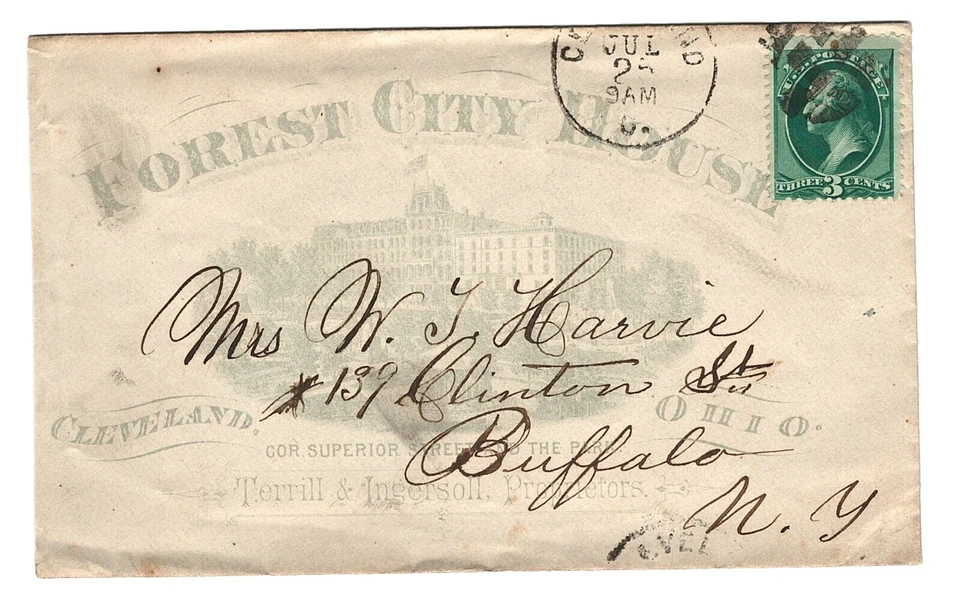 FOREST CITY HOUSE
JUL
25
9AM
O.
U.S. POSTAGE
THREE 3 CENTS
Mrs W. T. Harvie
#139 Clinton St
Buffalo
N. Y
CLEVELAND, OHIO.
COR. SUPERIOR STREET AND THE PARK.
Terrill & Ingersoll, Proprietors.